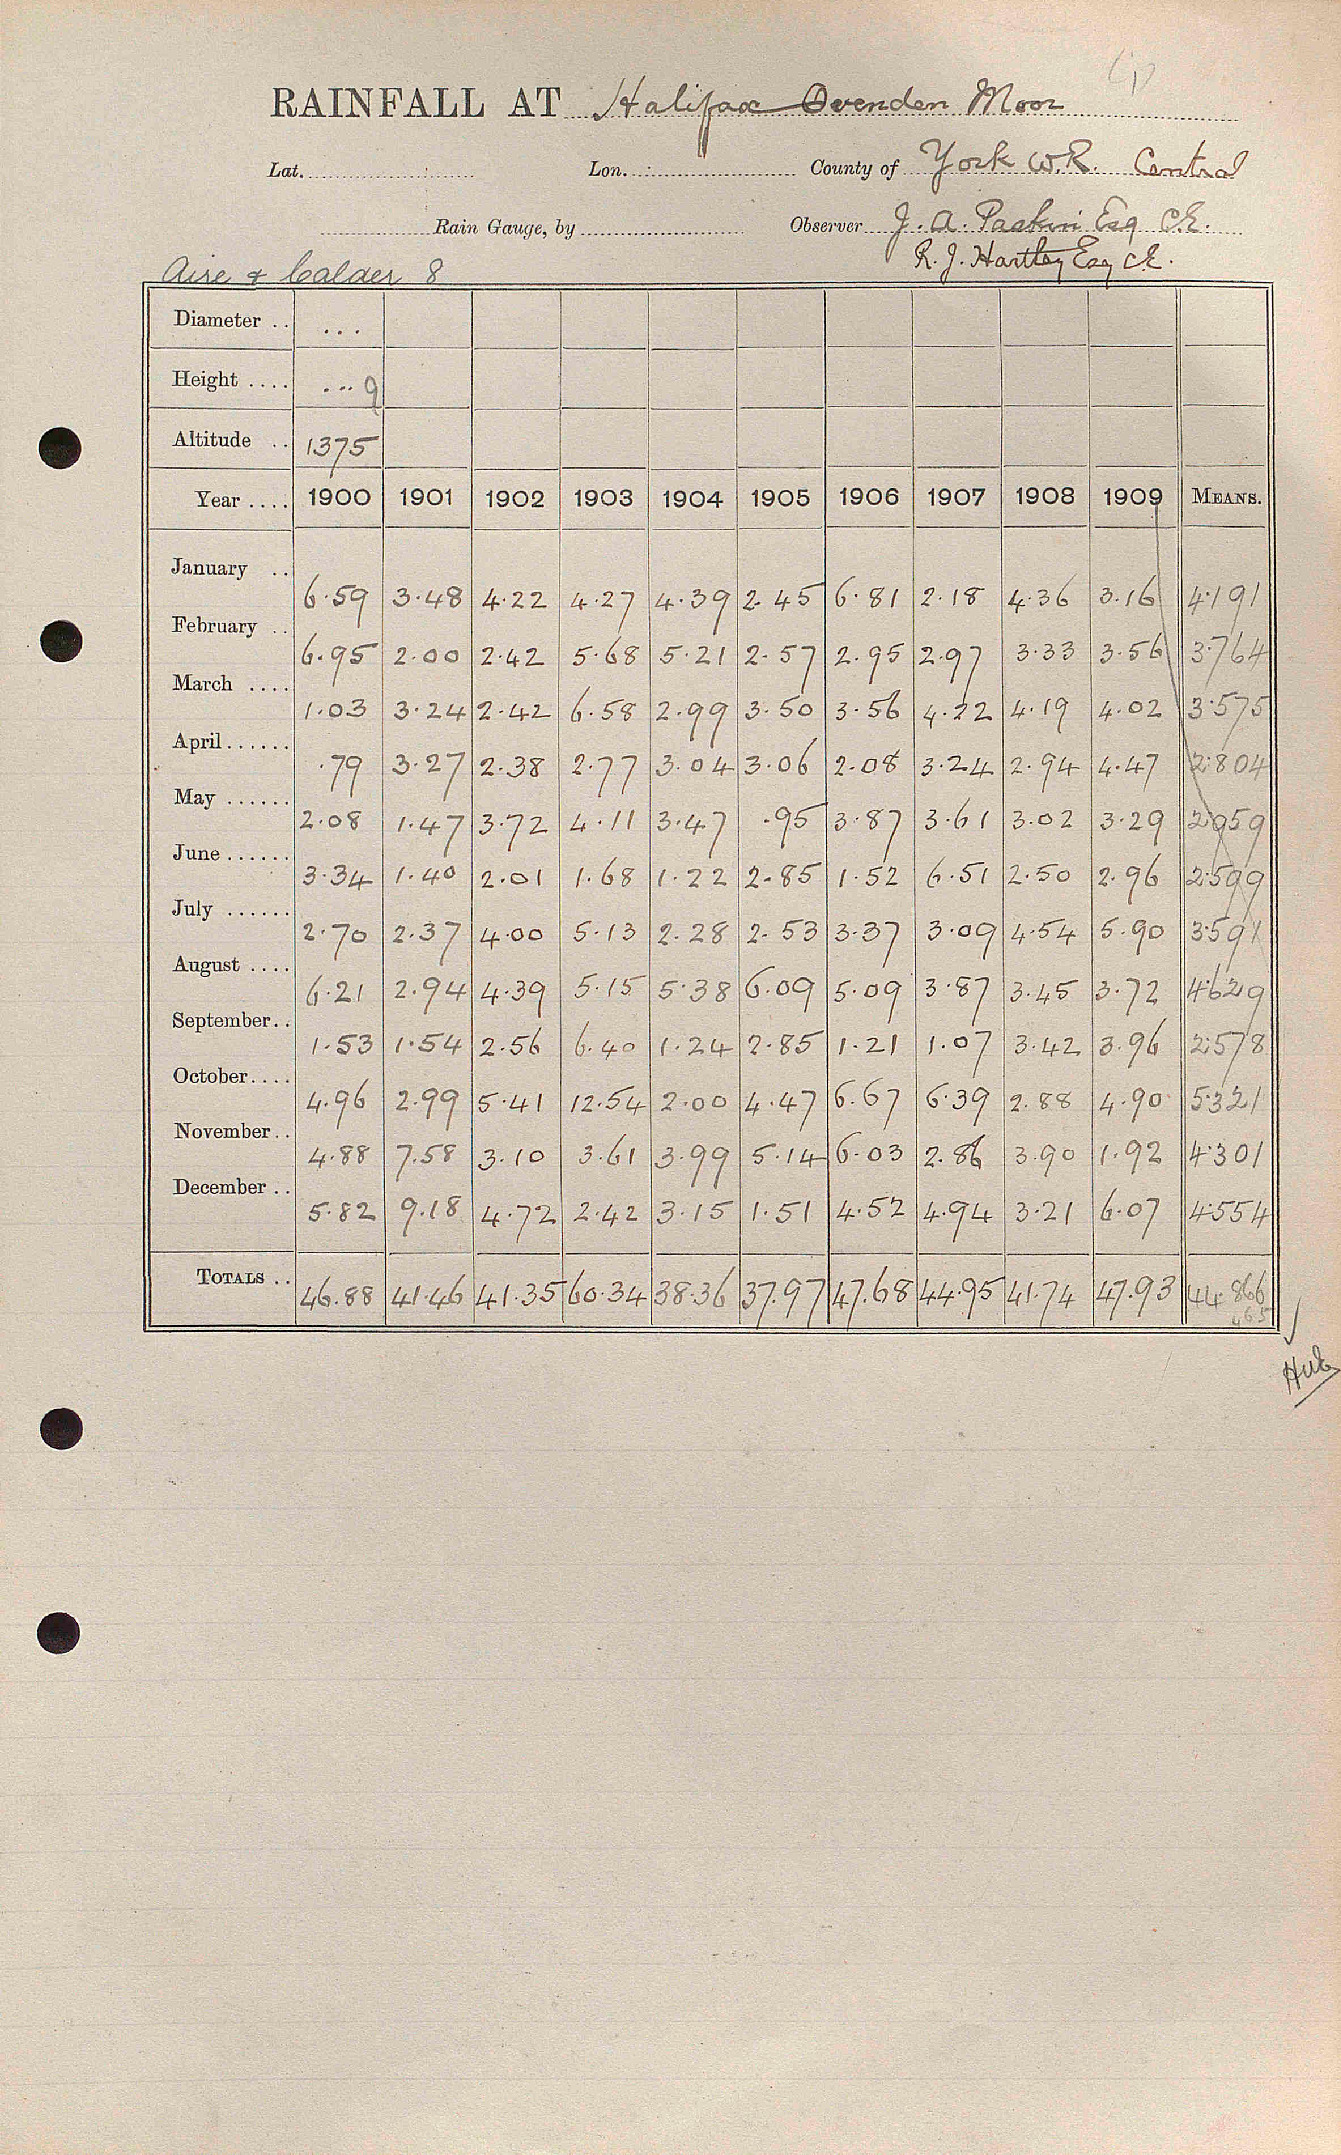 RAINFALL AT Halifax Ovenden Moor
Lat. Lon. County of York W.R. Central
Rain Gauge, by Observer J. A. Paskin Esq C.E.
R. J. Hartley Esq C.E.
Aire & Calder 8
Diameter .. ...
Height .... ... 9
Altitude .. 1375
Year .... 1900 1901 1902 1903 1904 1905 1906 1907 1908 1909 MEANS.
January .. 6.59 3.48 4.22 4.27 4.39 2.45 6.81 2.18 4.36 3.16 4.191
February .. 6.95 2.00 2.42 5.68 5.21 2.57 2.95 2.97 3.33 3.56 3.764
March .... 1.03 3.24 2.42 6.58 2.99 3.50 3.56 4.22 4.19 4.02 3.575
April...... .79 3.27 2.38 2.77 3.04 3.06 2.08 3.24 2.94 4.47 2.804
May ...... 2.08 1.47 3.72 4.11 3.47 .95 3.87 3.61 3.02 3.29 2.959
June...... 3.34 1.40 2.01 1.68 1.22 2.85 1.52 6.51 2.50 2.96 2.599
July ...... 2.70 2.37 4.00 5.13 2.28 2.53 3.37 3.09 4.54 5.90 3.591
August .... 6.21 2.94 4.39 5.15 5.38 6.09 5.09 3.87 3.45 3.72 4.629
September.. 1.53 1.54 2.56 6.40 1.24 2.85 1.21 1.07 3.42 3.96 2.578
October.... 4.96 2.99 5.41 12.54 2.00 4.47 6.67 6.39 2.88 4.90 5.321
November.. 4.88 7.58 3.10 3.61 3.99 5.14 6.03 2.86 3.90 1.92 4.301
December .. 5.82 9.18 4.72 2.42 3.15 1.51 4.52 4.94 3.21 6.07 4.554
TOTALS .. 46.88 41.46 41.35 60.34 38.36 37.97 47.68 44.95 41.74 47.93 44.866
465